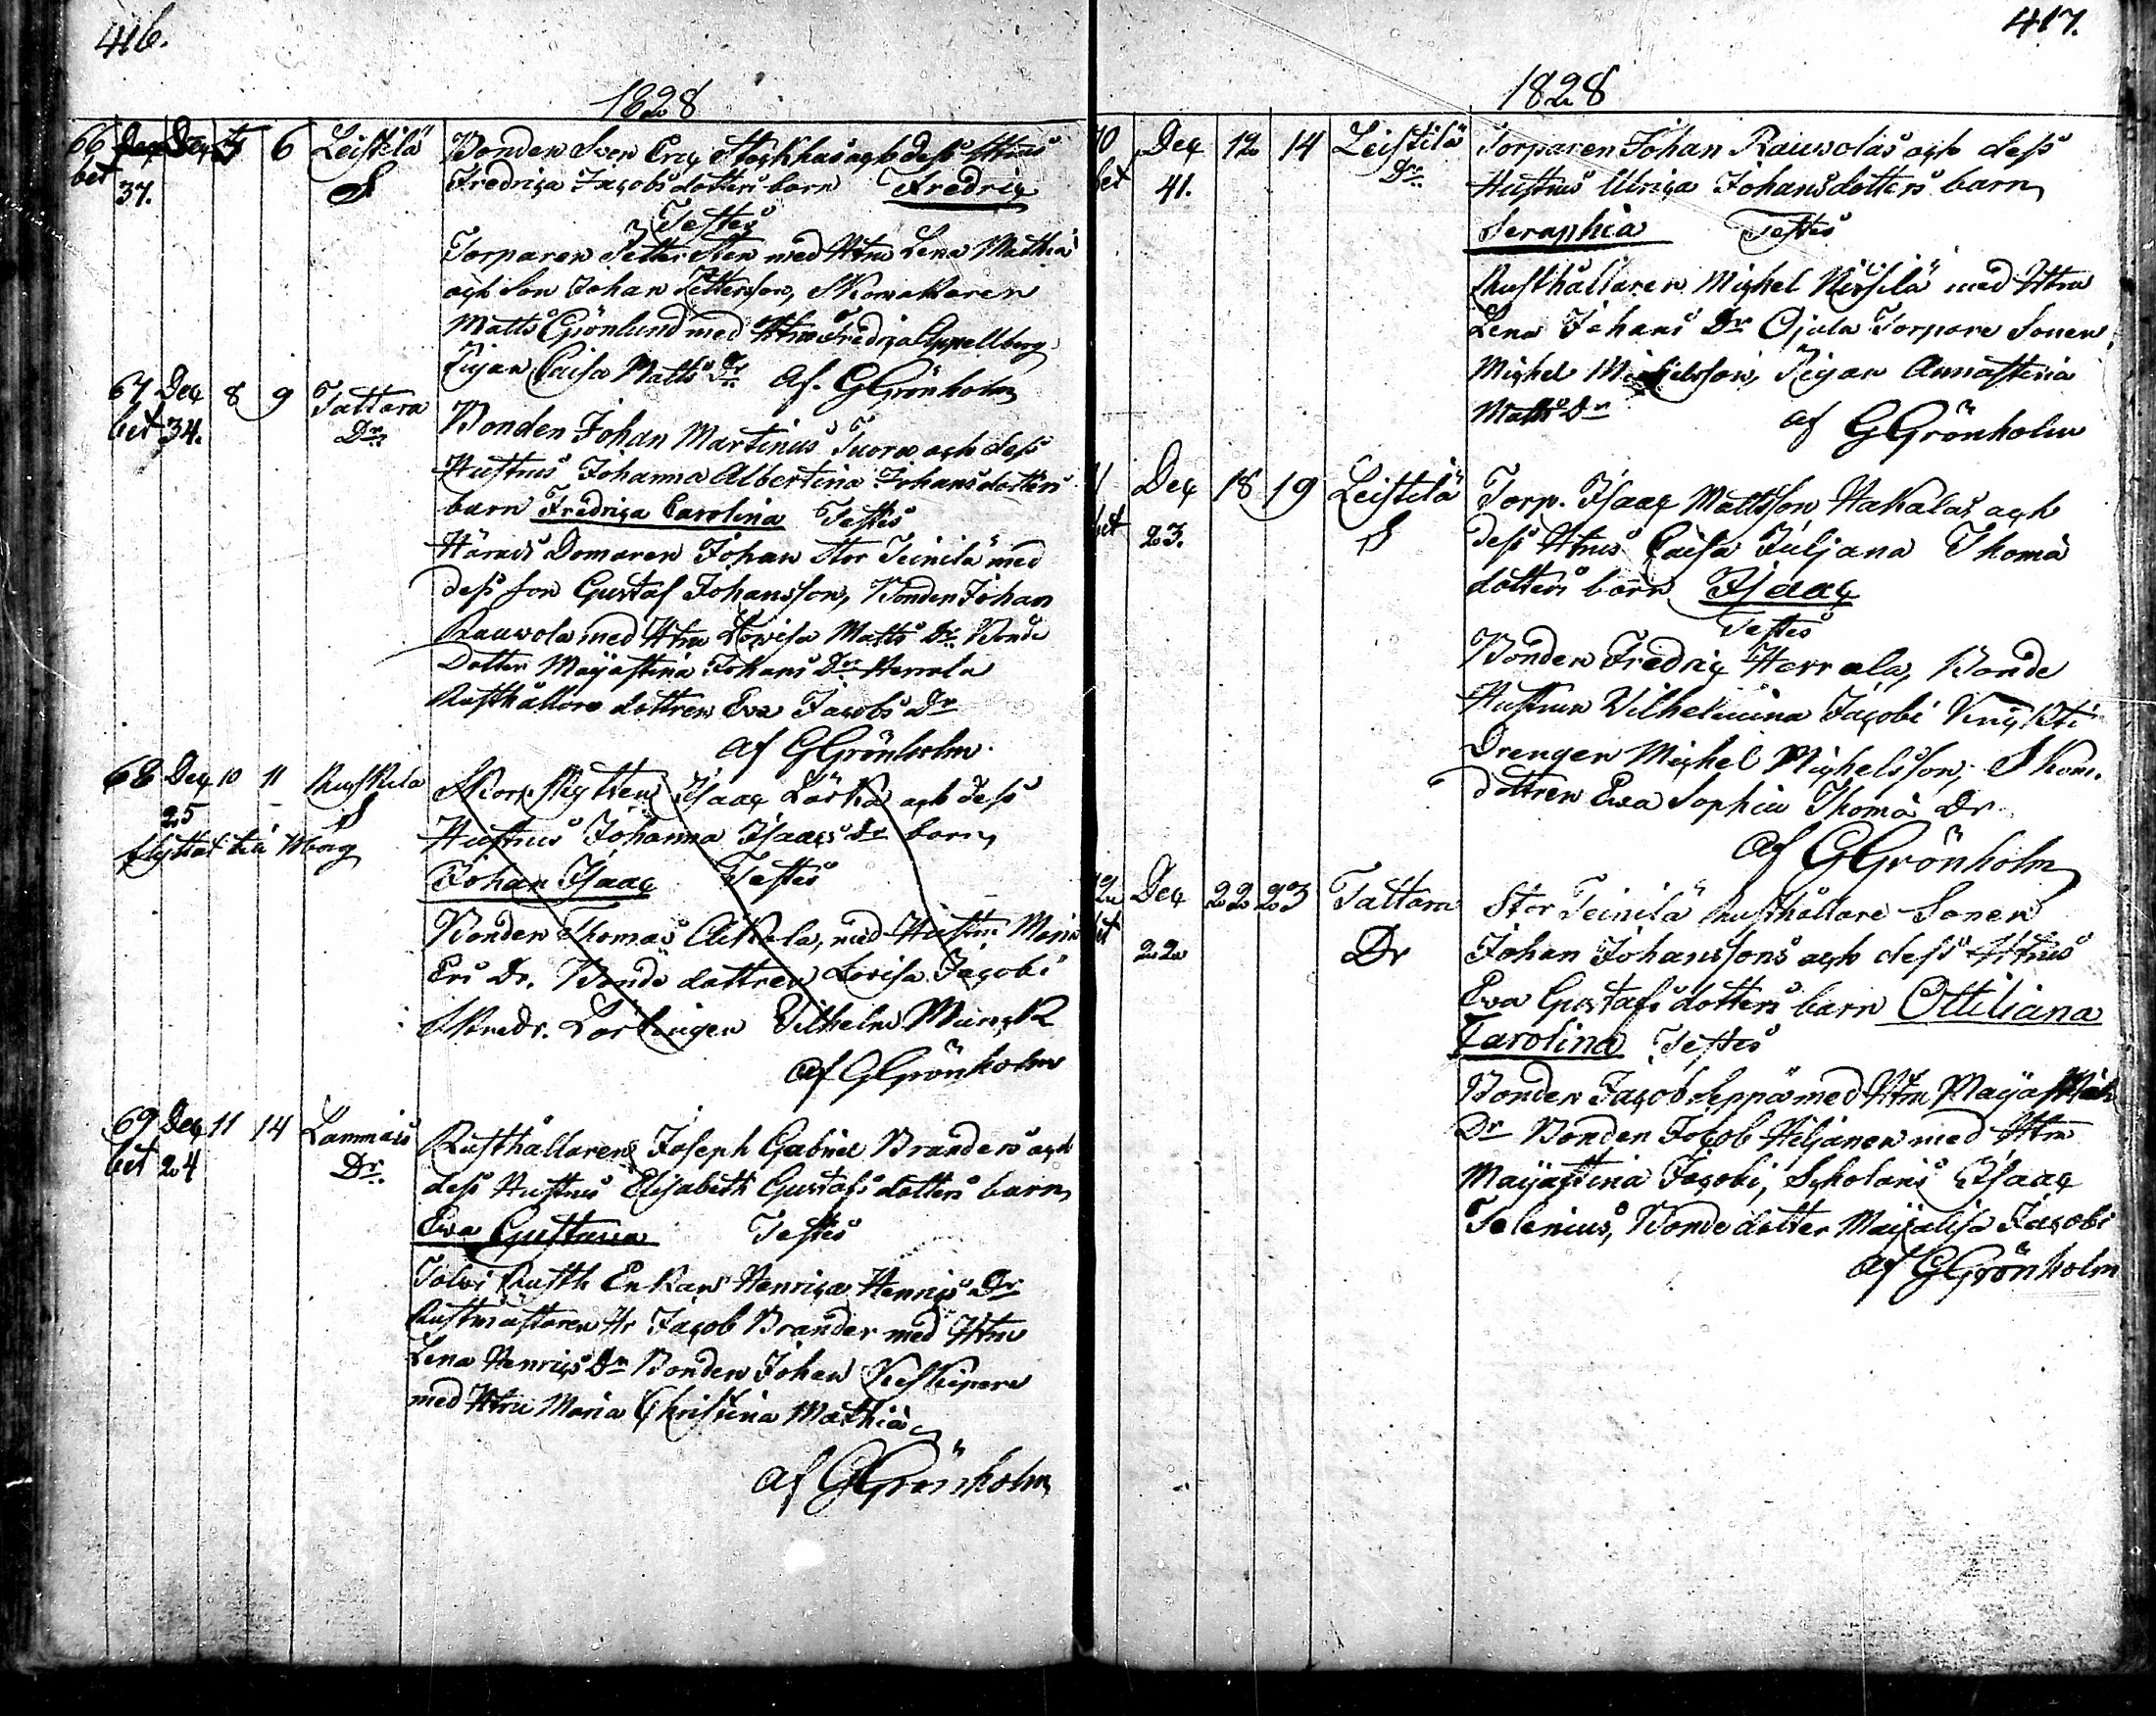 416.
1828
66 Dec Dec 5 6 Leistilä Bonden Sven Eric Stackhus och dess Htrus
bet 37. S Fredrica Jacobsdotters barn Fredric
Testes
Torparen Petter Sten med Htru Lena Mathiæ
och Son Johan Pettersson, Skomakaren
Matts Grönlund med Htru Fredrica Appellberg
Pigan Caisa Matts Dr af. G Grönholm
67 Dec 8 9 Tattara Bonden Johan Martinus Tuora och dess
bet 34. Dr. Hustrus Johanna Albertina Johansdotters
barn Fredrica Carolina Testes
Härads Domaren Johan Stor Teinilä med
dess son Gustaf Johansson, Bonden Johan
Rauvola med Htru Lovisa Matts Dr. Bonde
Dotter Majastina Johans Dr Herrala
Rusthållare dottren Eva Jacobs Dr
af G Grönholm.
68 Dec 10 11 Ruskila Skarpskytten Isaac Lörka och dess
25 S Hustrus Johanna Isaacs Dr barn
flyttat till
Johan Isaac Testes
Bonden Thomas Aikala, med Hustru Maria
Ers Dr. Bonde dottren Lovisa Jacobi
Skredr. Lärlingen Vilhelm Munck
af G Grönholm
69 Dec 11 14 Lammais Rusthållaren Joseph Gabriel Branders och
bet 24 Dr. dess Hustrus Elisabeth Gustafs dotters barn
Eva Gustava Testes
Tolvi Rusth Enkan Henrica Henrics Dr
Rustmästaren Hr Jacob Brander med Htru
Lena Henrics Dr Bonden Johan
med Htru Maria Christina Mathiæ
af G Grönholm
417.
1828
70 Dec 12 14 Leistilä Torparen Johan Rauvolas och dess
bet 41. Dr. Hustrus Ulrica Johansdotters barn
Seraphia Testes
Rusthållaren Michel Nissilä med Htru
Lena Johans Dr Ojala Torpare Sonen
Michel Michelsson, Pigan Annastina
Matts Dr af G Grönholm
71 Dec 18 19 Leistilä Torp. Isaac Mattsson Hakalas och
bet 23. S dess Htrus Caisa Juljana Thomæ
dotters barn Isaac
Testes
Bonden Fredric Herrala, Bonde
Hustrun Vilhelmina Jacobi
Drengen Michel Michelsson, Skom.
dottren Eva Sophia Thomæ Dr
af G Grönholm
72 Dec 22 23 Tattara Stor Teinilä Rusthållare Sonen
bet 22 Dr Johan Johanssons och dess Htrus
Eva Gustafs dotters barn Ottiliana
Carolina Testes
Bonden Jacob Seppä med Htru Maja
Dr Bonden Jacob Hiljanen med Htru
Majastina Jacobi, Scholaris Isaac
Selenius, Bonde dotter Majalisa Jacobi
af G Grönholm